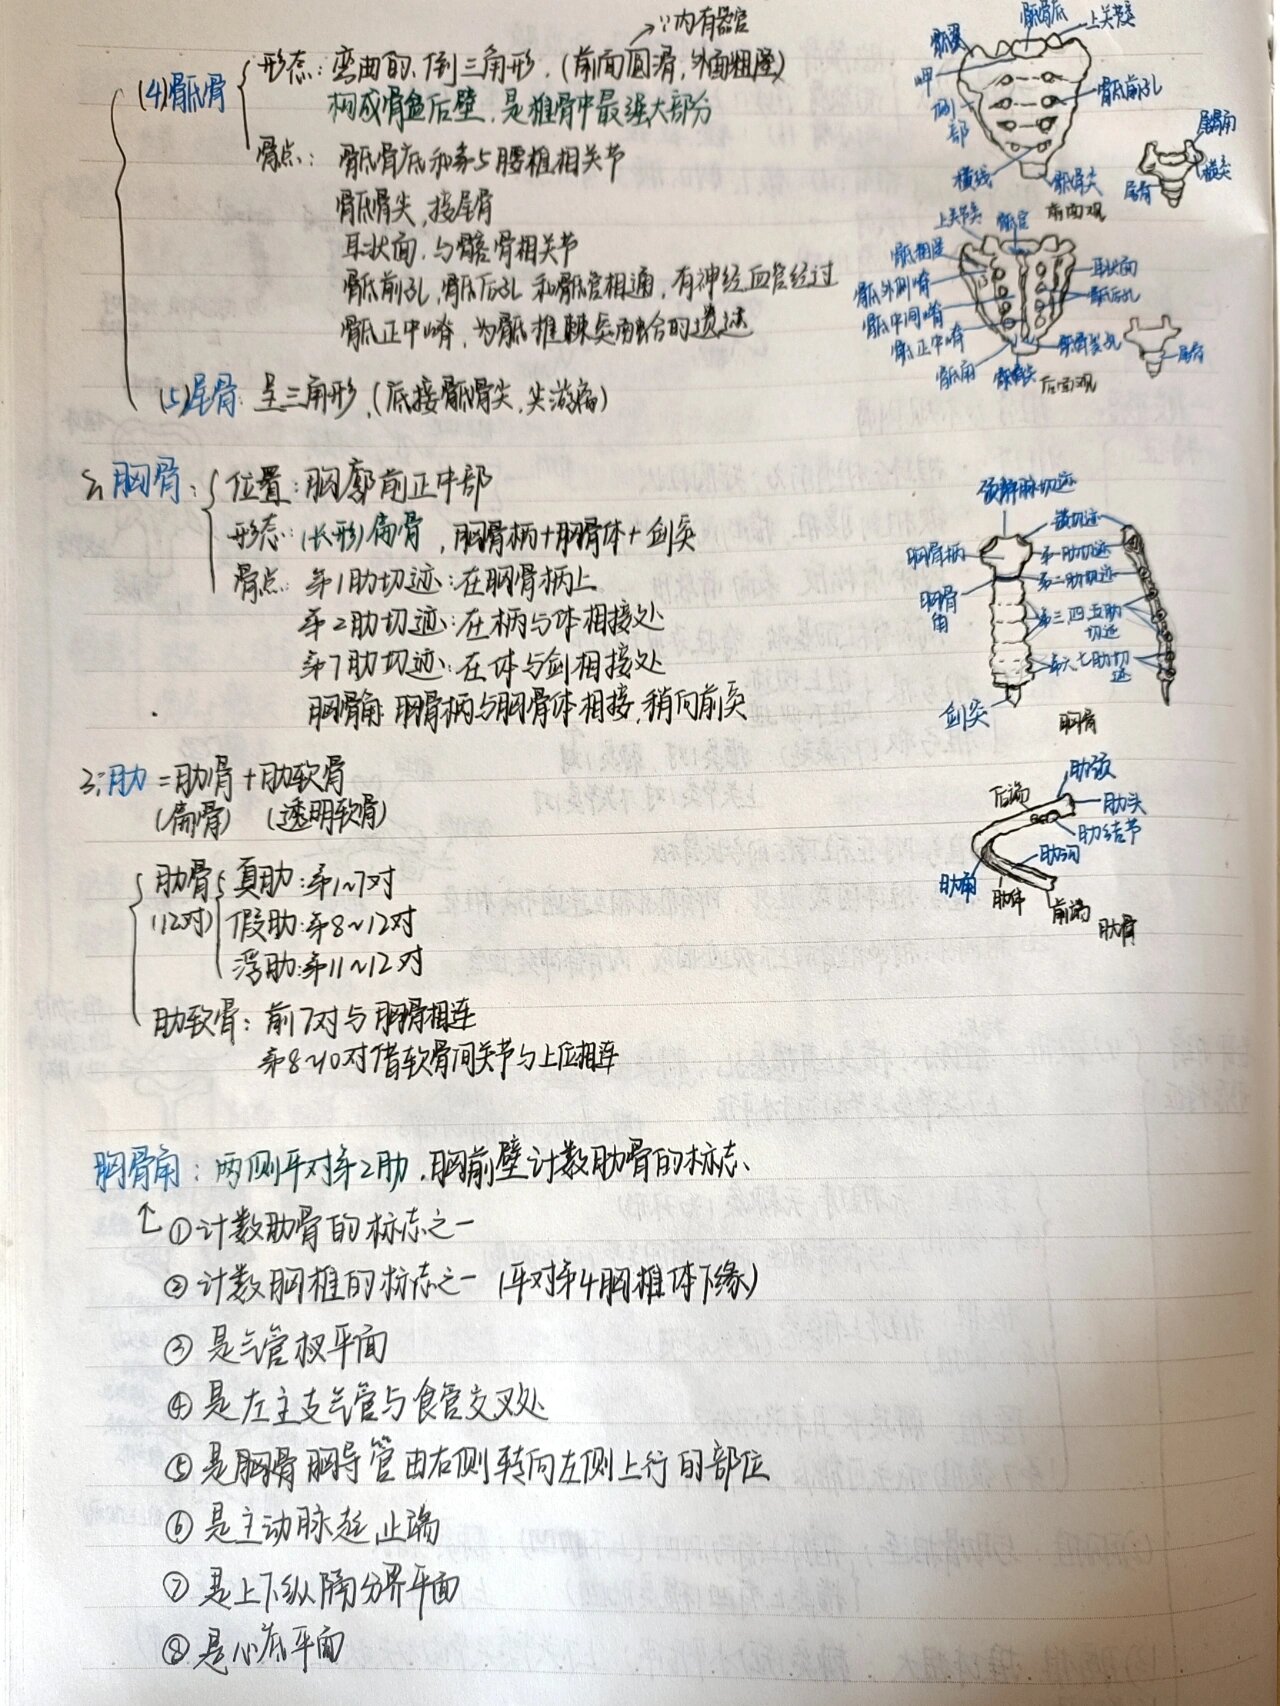 ∵内有器官
(4)骶骨 形态：弯曲的、倒三角形.(前面圆滑,外面粗隆)
构成骨盆后壁,是椎骨中最强大部分
骨点：骶骨底和第5腰椎相关节
骶骨尖,接尾骨
耳状面,与髂骨相关节
骶前孔,骶后孔和骶管相通,有神经血管经过
骶正中嵴,为骶椎棘突融合的遗迹
(5)尾骨：呈三角形,(底接骶骨尖,尖游离)
骶骨底
上关节突
骶翼
岬
侧部
骶前孔
横线
骶骨尖
前面观
尾骨角
横突
尾骨
上关节突
骶管
骶粗隆
骶外侧嵴
骶中间嵴
骶正中嵴
骶角
骶骨尖
耳状面
骶后孔
骶管裂孔
后面观
尾骨
2、胸骨：位置：胸廓前正中部
形态：(长形)扁骨,胸骨柄+胸骨体+剑突
骨点：第1肋切迹：在胸骨柄上
第2肋切迹：在柄与体相接处
第7肋切迹：在体与剑相接处
胸骨角：胸骨柄与胸骨体相接,稍向前突
颈静脉切迹
锁切迹
胸骨柄
第一肋切迹
第二肋切迹
胸骨角
第三四五肋切迹
第六七肋切迹
剑突
胸骨
3、肋=肋骨+肋软骨
(扁骨) (透明软骨)
肋骨 真肋：第1~7对
(12对) 假肋：第8~12对
浮肋：第11~12对
肋软骨：前7对与胸骨相连
第8~10对借软骨间关节与上位相连
后端
肋颈
肋头
肋结节
肋沟
肋角
肋体
前端
肋骨
胸骨角：两侧平对第2肋,胸前壁计数肋骨的标志、
①计数肋骨的标志之一
②计数胸椎的标志之一(平对第4胸椎体下缘)
③是气管杈平面
④是左主支气管与食管交叉处
⑤是胸骨胸导管由右侧转向左侧上行的部位
⑥是主动脉起、止端
⑦是上下纵隔分界平面
⑧是心底平面